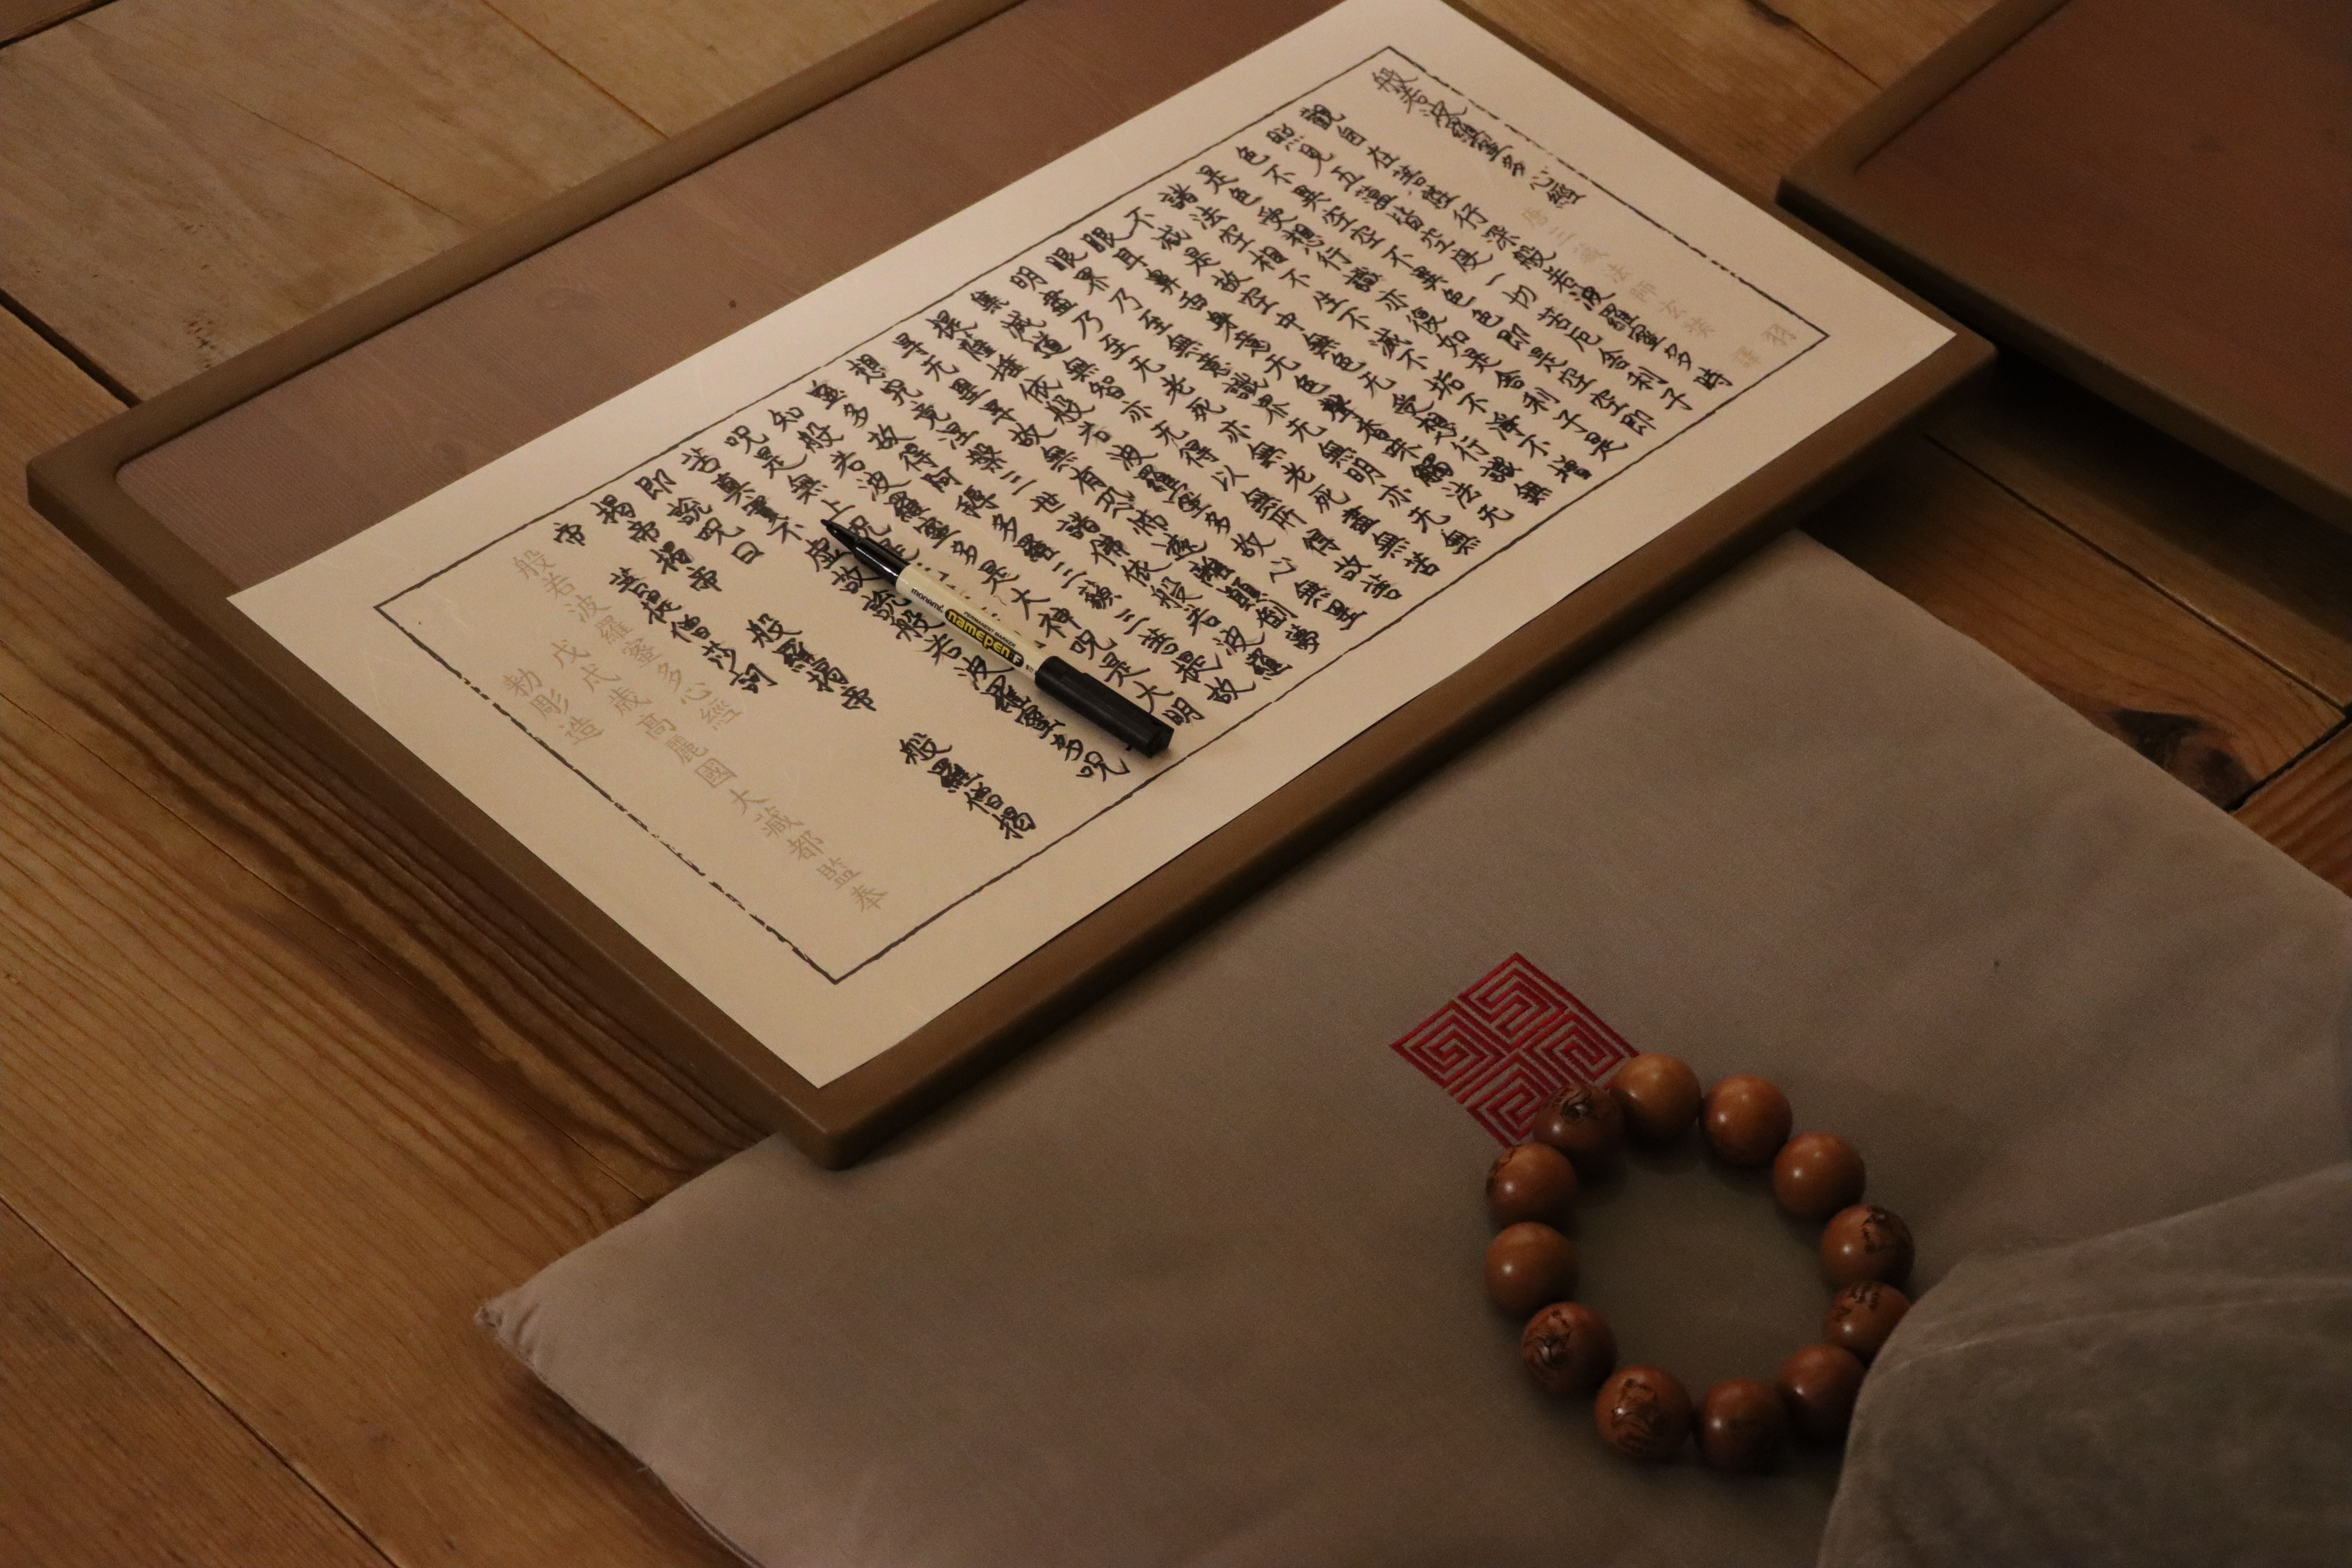 般若波羅蜜多心經
唐三藏法師玄奘 譯 羽
觀自在菩薩行深般若波羅蜜多時
照見五蘊皆空度一切苦厄舍利子
色不異空空不異色色即是空空即
是色受想行識亦復如是舍利子是
諸法空相不生不滅不垢不淨不增
不減是故空中無色无受想行識無
眼耳鼻舌身意无色聲香味觸法无
眼界乃至無意識界无無明亦无無
明盡乃至无老死亦無老死盡無苦
集滅道無智亦无得以無所得故菩
提薩埵依般若波羅蜜多故心無罣
㝵无罣㝵故無有恐怖遠離顚倒夢
想究竟涅槃三世諸佛依般若波羅
蜜多故得阿耨多羅三藐三菩提故
知般若波羅蜜多是大神呪是大明
呪是無上呪是
苦真實不虛故說般若波羅蜜多呪
即說呪曰
揭帝揭帝 般羅揭帝 般羅僧揭
帝 菩提僧莎訶
般若波羅蜜多心經
戊戌歲高麗國大藏都監奉
勅彫造
monami
namepen F